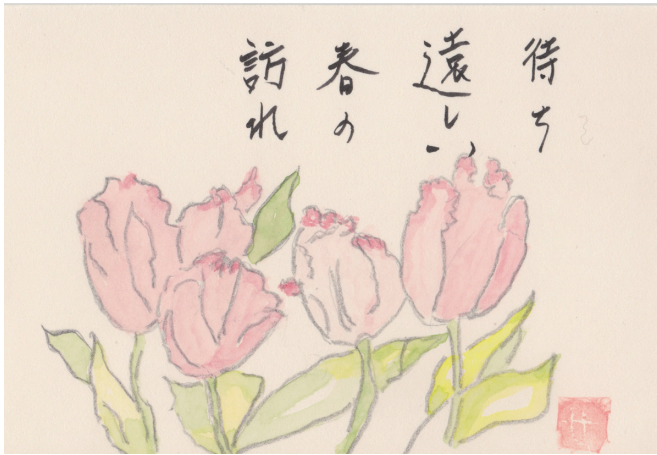 待ち
遠しい
春の
訪れ